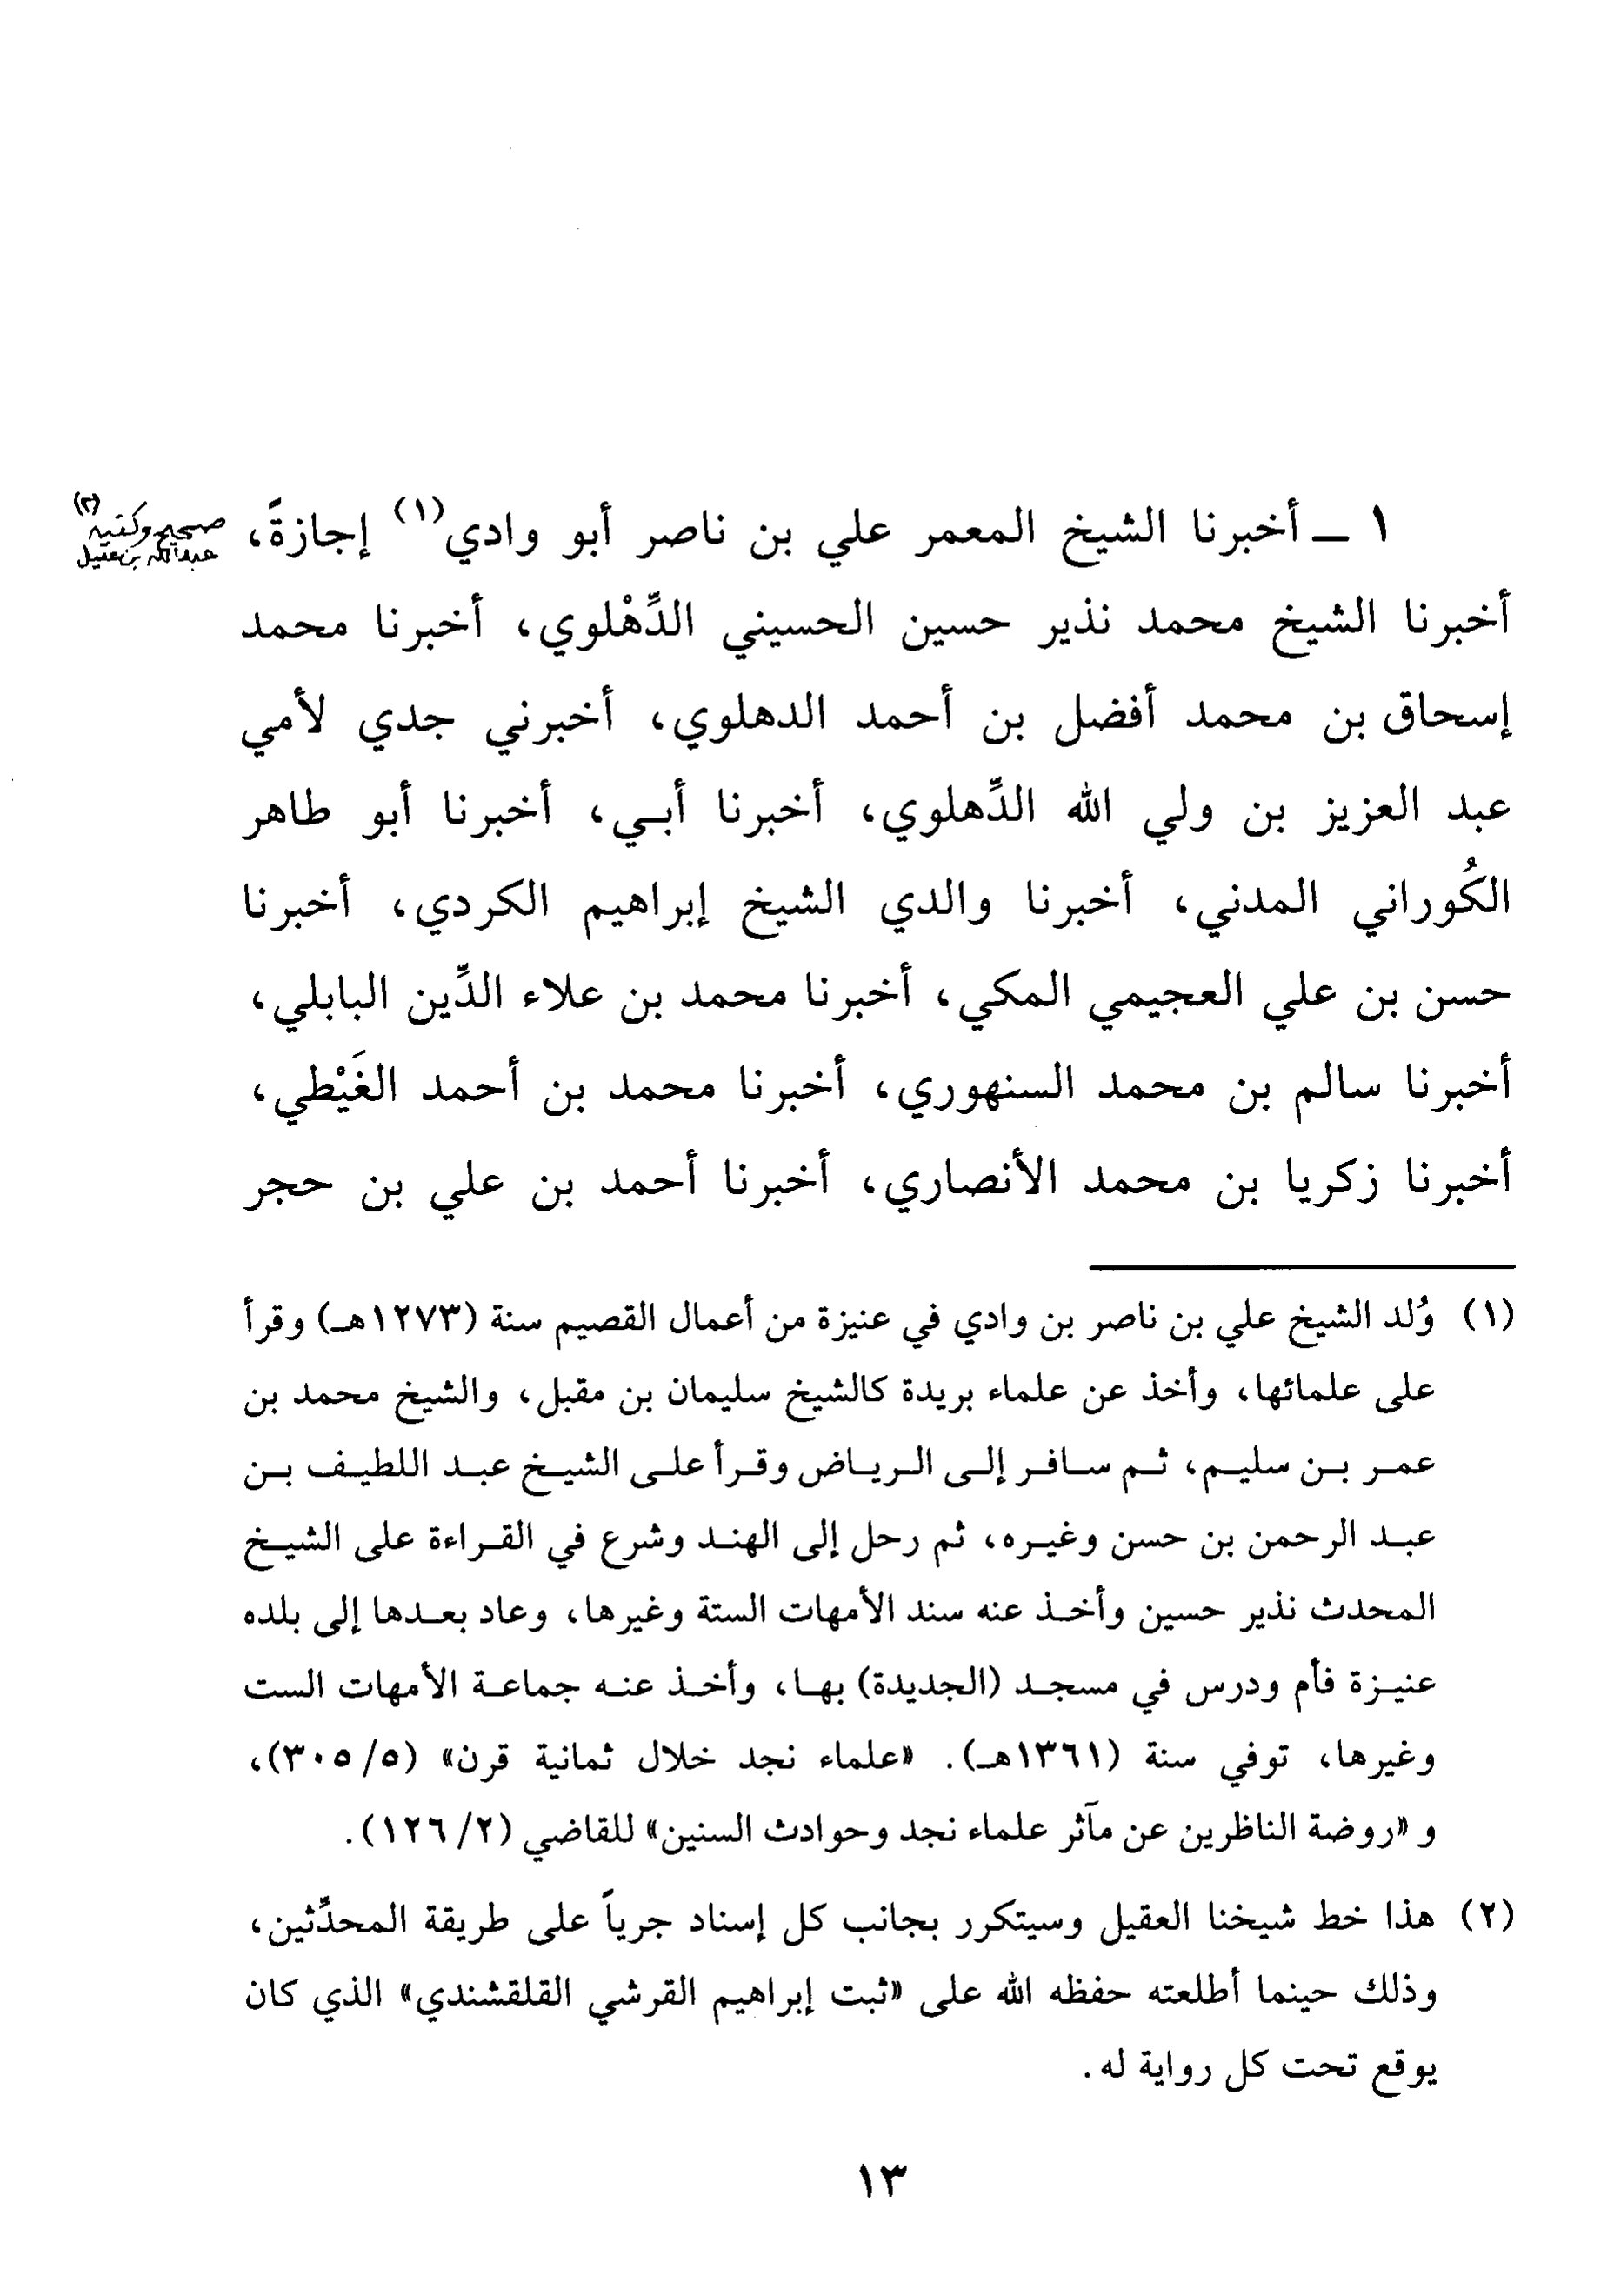 ١ ــ أخبرنا الشيخ المعمر علي بن ناصر أبو وادي(١) إجازةً،
صحيح وكتبه(٢)
عبدالله بن عقيل
أخبرنا الشيخ محمد نذير حسين الحسيني الدِّهْلوي، أخبرنا محمد
إسحاق بن محمد أفضل بن أحمد الدهلوي، أخبرني جدي لأمي
عبد العزيز بن ولي الله الدِّهلوي، أخبرنا أبـي، أخبرنا أبو طاهر
الكُوراني المدني، أخبرنا والدي الشيخ إبراهيم الكردي، أخبرنا
حسن بن علي العجيمي المكي، أخبرنا محمد بن علاء الدِّين البابلي،
أخبرنا سالم بن محمد السنهوري، أخبرنا محمد بن أحمد الغَيْطي،
أخبرنا زكريا بن محمد الأنصاري، أخبرنا أحمد بن علي بن حجر
(١) وُلد الشيخ علي بن ناصر بن وادي في عنيزة من أعمال القصيم سنة (١٢٧٣هـ) وقرأ
على علمائها، وأخذ عن علماء بريدة كالشيخ سليمان بن مقبل، والشيخ محمد بن
عمـر بـن سليـم، ثـم سـافـر إلـى الـريـاض وقـرأ علـى الشيـخ عبـد اللطيـف بـن
عبـد الرحمن بن حسن وغيـره، ثم رحل إلى الهنـد وشرع في القـراءة على الشيـخ
المحدث نذير حسين وأخـذ عنه سند الأمهات الستة وغيرها، وعاد بعـدها إلى بلده
عنيـزة فأم ودرس في مسجـد (الجديدة) بهـا، وأخـذ عنـه جماعـة الأمهات الست
وغيرها، توفي سنة (١٣٦١هـ). «علماء نجد خلال ثمانية قرن» (٥/ ٣٠٥)،
و «روضة الناظرين عن مآثر علماء نجد وحوادث السنين» للقاضي (٢/ ١٢٦).
(٢) هذا خط شيخنا العقيل وسيتكرر بجانب كل إسناد جرياً على طريقة المحدِّثين،
وذلك حينما أطلعته حفظه الله على «ثبت إبراهيم القرشي القلقشندي» الذي كان
يوقع تحت كل رواية له.
١٣